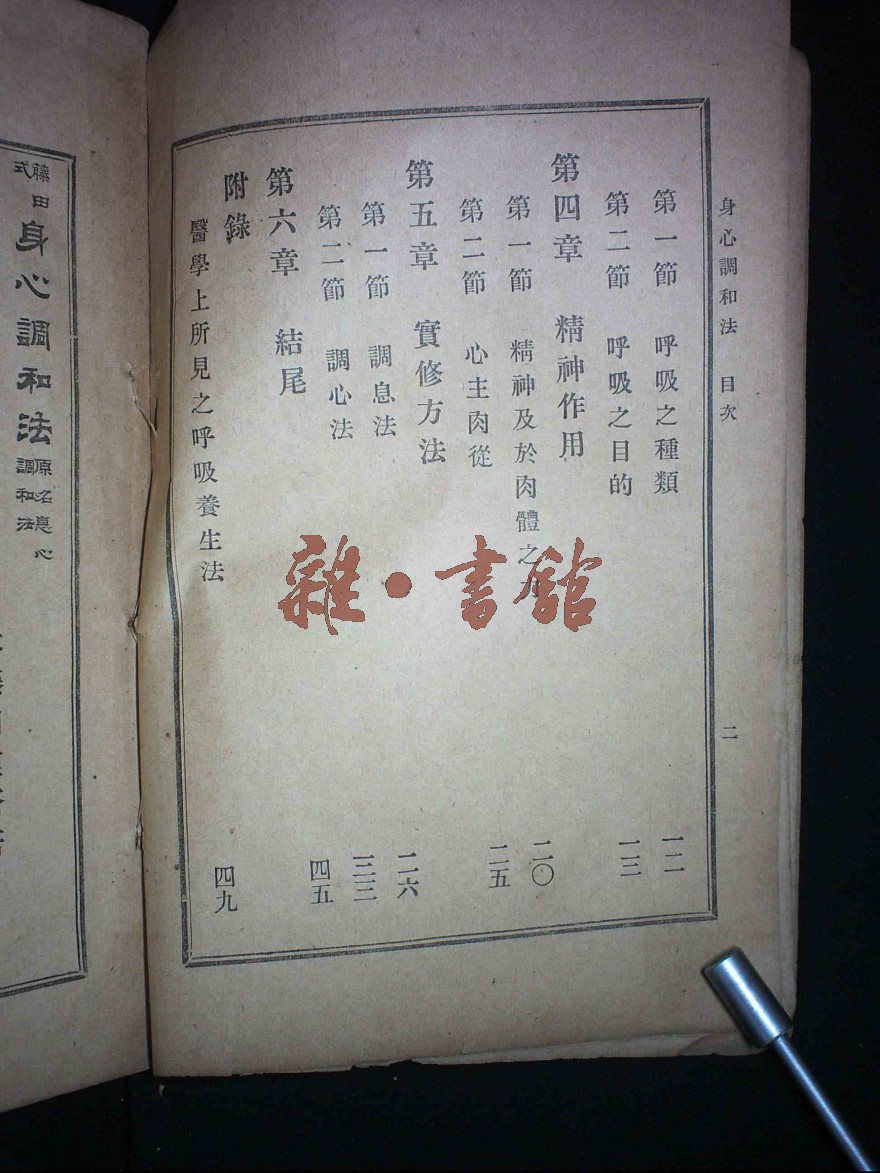 身心調和法　目次
二
第一節　呼吸之種類　一二
第二節　呼吸之目的　一三
第四章　精神作用
第一節　精神及於肉體之　二〇
第二節　心主肉從　二五
第五章　實修方法
第一節　調息法　二六
第二節　調心法　三三
第六章　結尾　四五
附錄
醫學上所見之呼吸養生法　四九
藤田式身心調和法　原名息心調和法
雜·書館